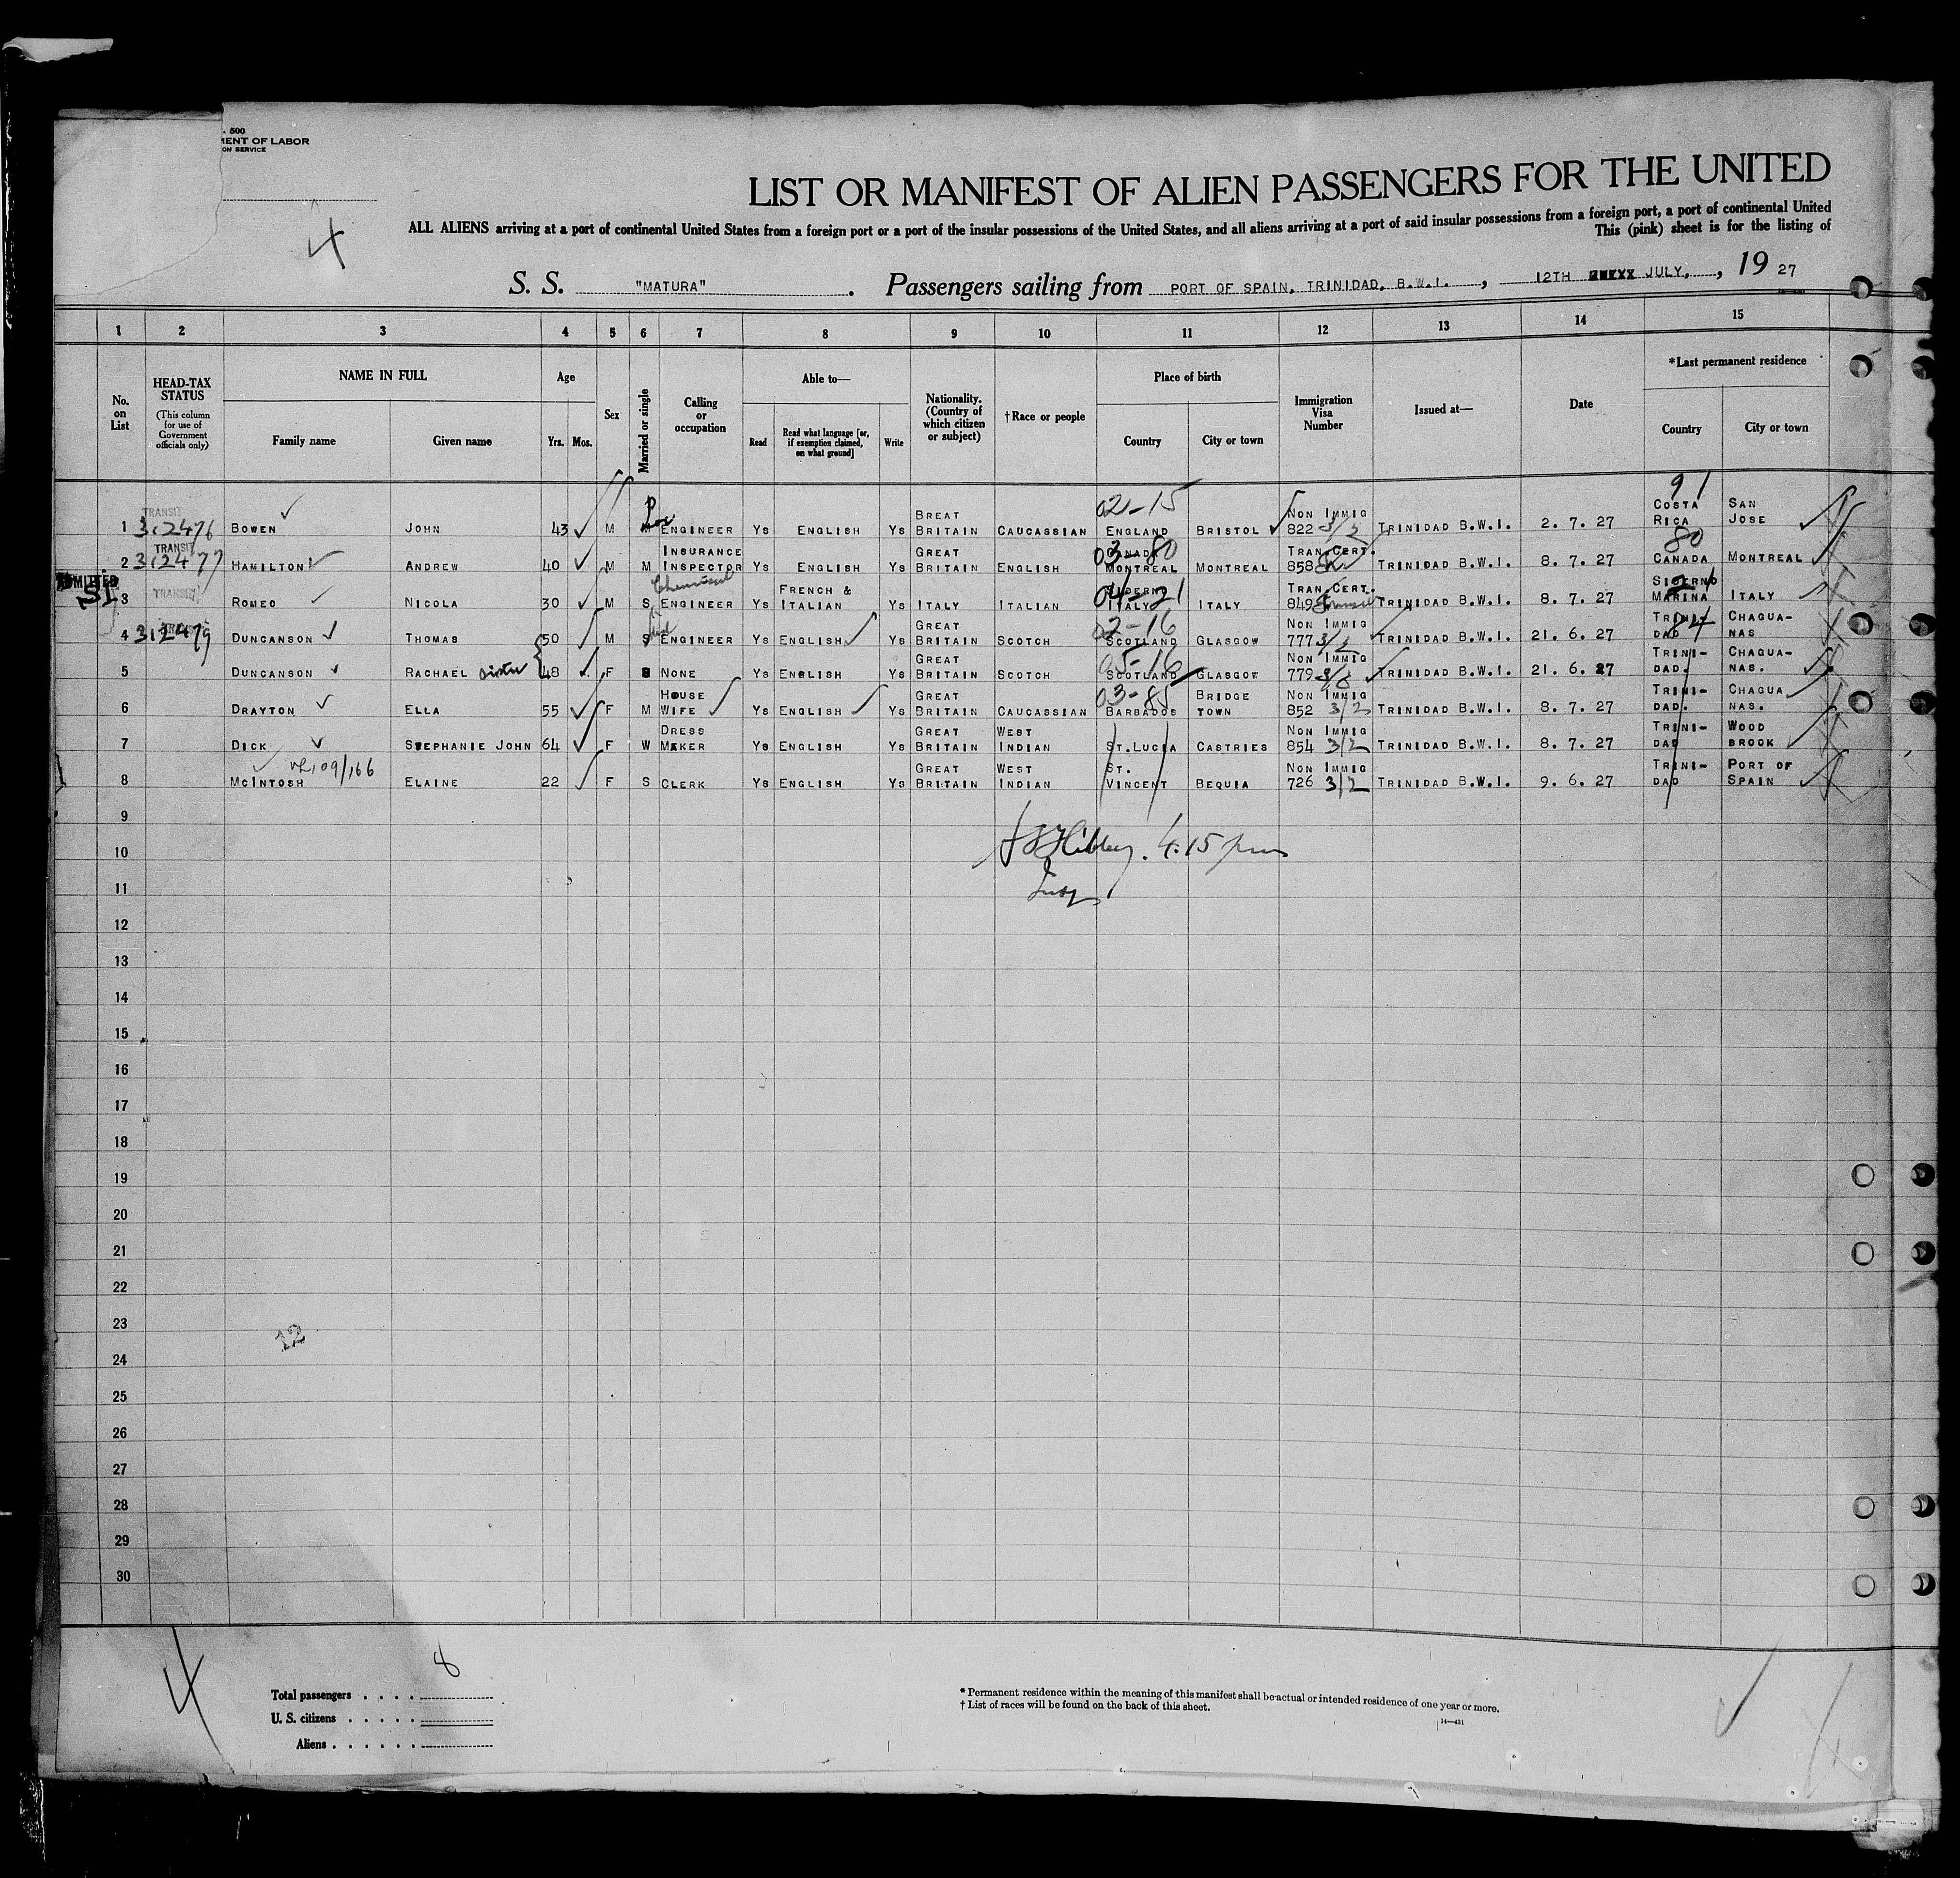 . 500
MENT OF LABOR
ON SERVICE
4
LIST OR MANIFEST OF ALIEN PASSENGERS FOR THE UNITED
ALL ALIENS arriving at a port of continental United States from a foreign port or a port of the insular possessions of the United States, and all aliens arriving at a port of said insular possessions from a foreign port, a port of continental United
This (pink) sheet is for the listing of
S. S. "MATURA". Passengers sailing from PORT OF SPAIN, TRINIDAD, B.W.I., 12TH JULY, , 19 27
1 2 3 4 5 6 7 8 9 10 11 12 13 14 15
No. on List
HEAD-TAX STATUS
(This column for use of Government officials only)
NAME IN FULL
Family name Given name
Age
Yrs. Mos.
Sex
Married or single
Calling or occupation
Able to—
Read Read what language [or, if exemption claimed, on what ground] Write
Nationality. (Country of which citizen or subject)
†Race or people
Place of birth
Country City or town
Immigration Visa Number
Issued at—
Date
*Last permanent residence
Country City or town
1 TRANSIT 312476 BOWEN JOHN 43 M ENGINEER Ys ENGLISH Ys BREAT BRITAIN CAUCASSIAN 02-15 ENGLAND BRISTOL NON IMMIG 822 3/2 TRINIDAD B.W.I. 2. 7. 27 91 COSTA RICA SAN JOSE
2 TRANSIT 312477 HAMILTON ANDREW 40 M M INSURANCE INSPECTOR Ys ENGLISH Ys GREAT BRITAIN ENGLISH 03-80 CANADA MONTREAL MONTREAL TRAN.CERT. 858 TRINIDAD B.W.I. 8. 7. 27 80 CANADA MONTREAL
ADMITTED SI 3 TRANSIT ROMEO NICOLA 30 M S Chemical ENGINEER Ys FRENCH & ITALIAN Ys ITALY ITALIAN 04-21 SIDERNO ITALY ITALY TRAN.CERT. 849 Transit TRINIDAD B.W.I. 8. 7. 27 21 SIDERNO MARINA ITALY
4 312479 DUNCANSON THOMAS 50 M S ENGINEER Ys ENGLISH Ys GREAT BRITAIN SCOTCH 02-16 SCOTLAND GLASGOW NON IMMIG 777 3/2 TRINIDAD B.W.I. 21. 6. 27 TRINI-DAD CHAGUA-NAS
5 DUNCANSON RACHAEL sister 48 F S NONE Ys ENGLISH Ys GREAT BRITAIN SCOTCH 05-16 SCOTLAND GLASGOW NON IMMIG 779 TRINIDAD B.W.I. 21. 6. 27 TRINI-DAD. CHAGUA-NAS.
6 DRAYTON ELLA 55 F M HOUSE WIFE Ys ENGLISH Ys GREAT BRITAIN CAUCASSIAN 03-85 BARBADOS BRIDGE TOWN NON IMMIG 852 3/2 TRINIDAD B.W.I. 8. 7. 27 TRINI-DAD. CHAGUA NAS.
7 DICK STEPHANIE JOHN 64 F W DRESS MAKER Ys ENGLISH Ys GREAT BRITAIN WEST INDIAN ST.LUCIA CASTRIES NON IMMIG 854 3/2 TRINIDAD B.W.I. 8. 7. 27 TRINI-DAD WOOD BROOK
8 09/166 MCINTOSH ELAINE 22 F S CLERK Ys ENGLISH Ys GREAT BRITAIN WEST INDIAN ST. VINCENT BEQUIA NON IMMIG 726 3/2 TRINIDAD B.W.I. 9. 6. 27 TRINI-DAD PORT OF SPAIN
9
4.15 pm
10
11
12
13
14
15
16
17
18
19
20
21
22
23
12
24
25
26
27
28
29
30
4
8
Total passengers . . . .
U. S. citizens . . . . .
Aliens . . . . . .
* Permanent residence within the meaning of this manifest shall be actual or intended residence of one year or more.
† List of races will be found on the back of this sheet.
14—431